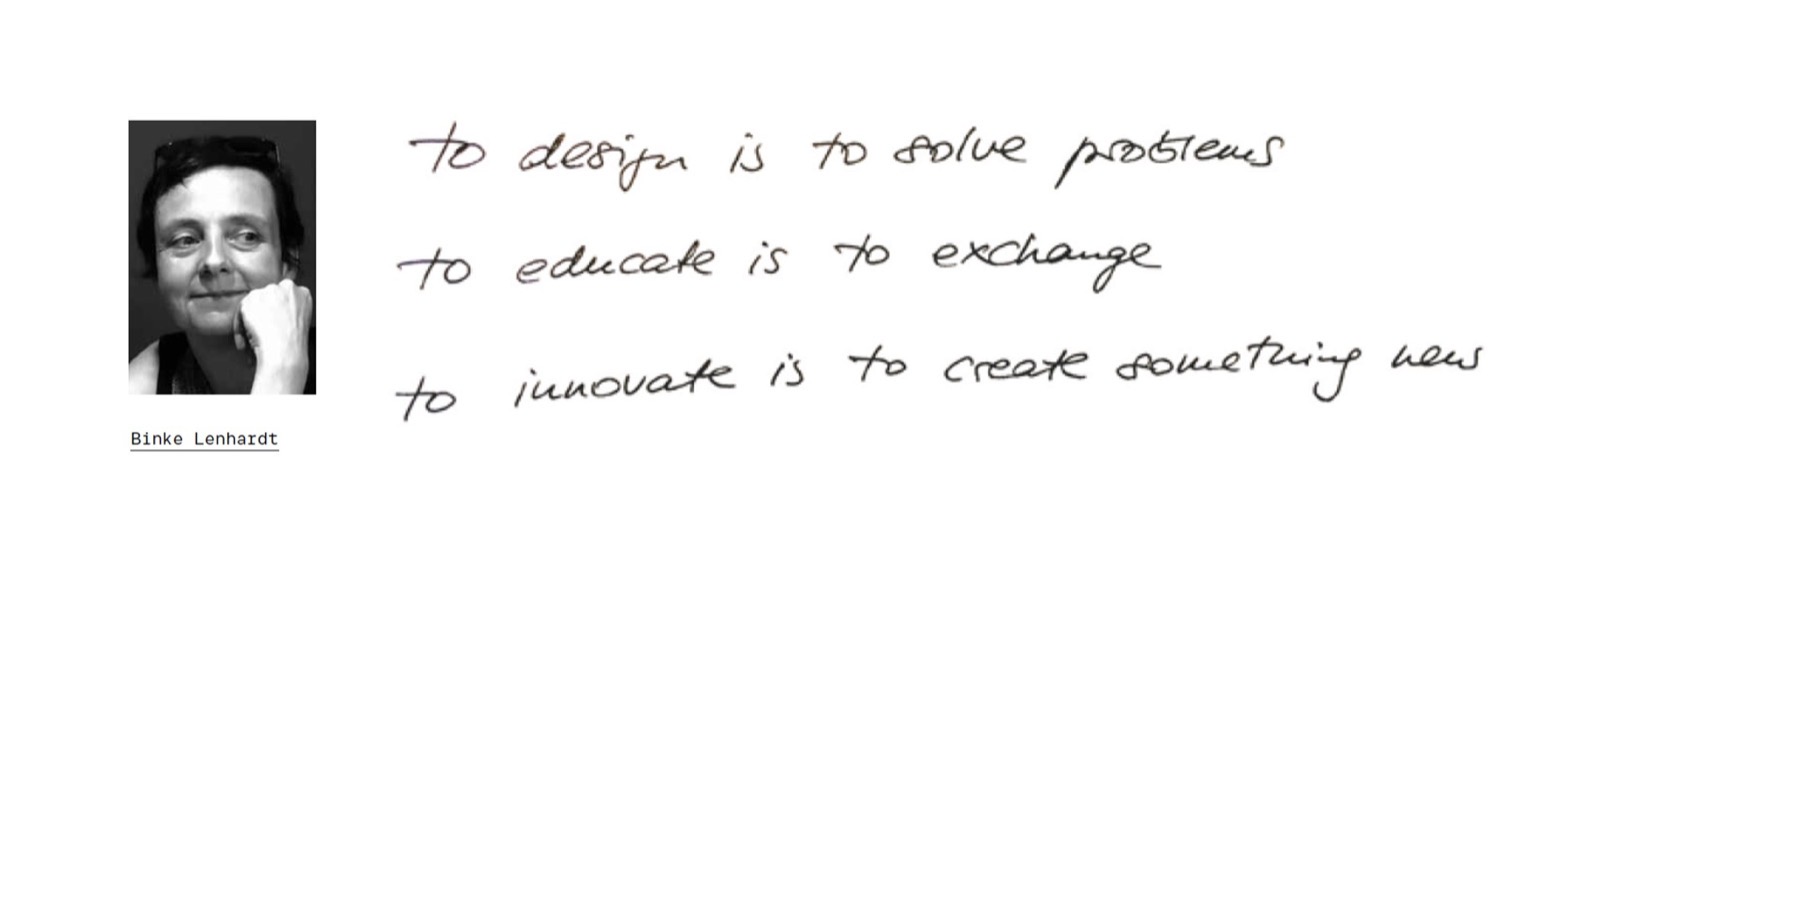 to design is to solve problems
to educate is to exchange
to innovate is to create something new
Binke Lenhardt